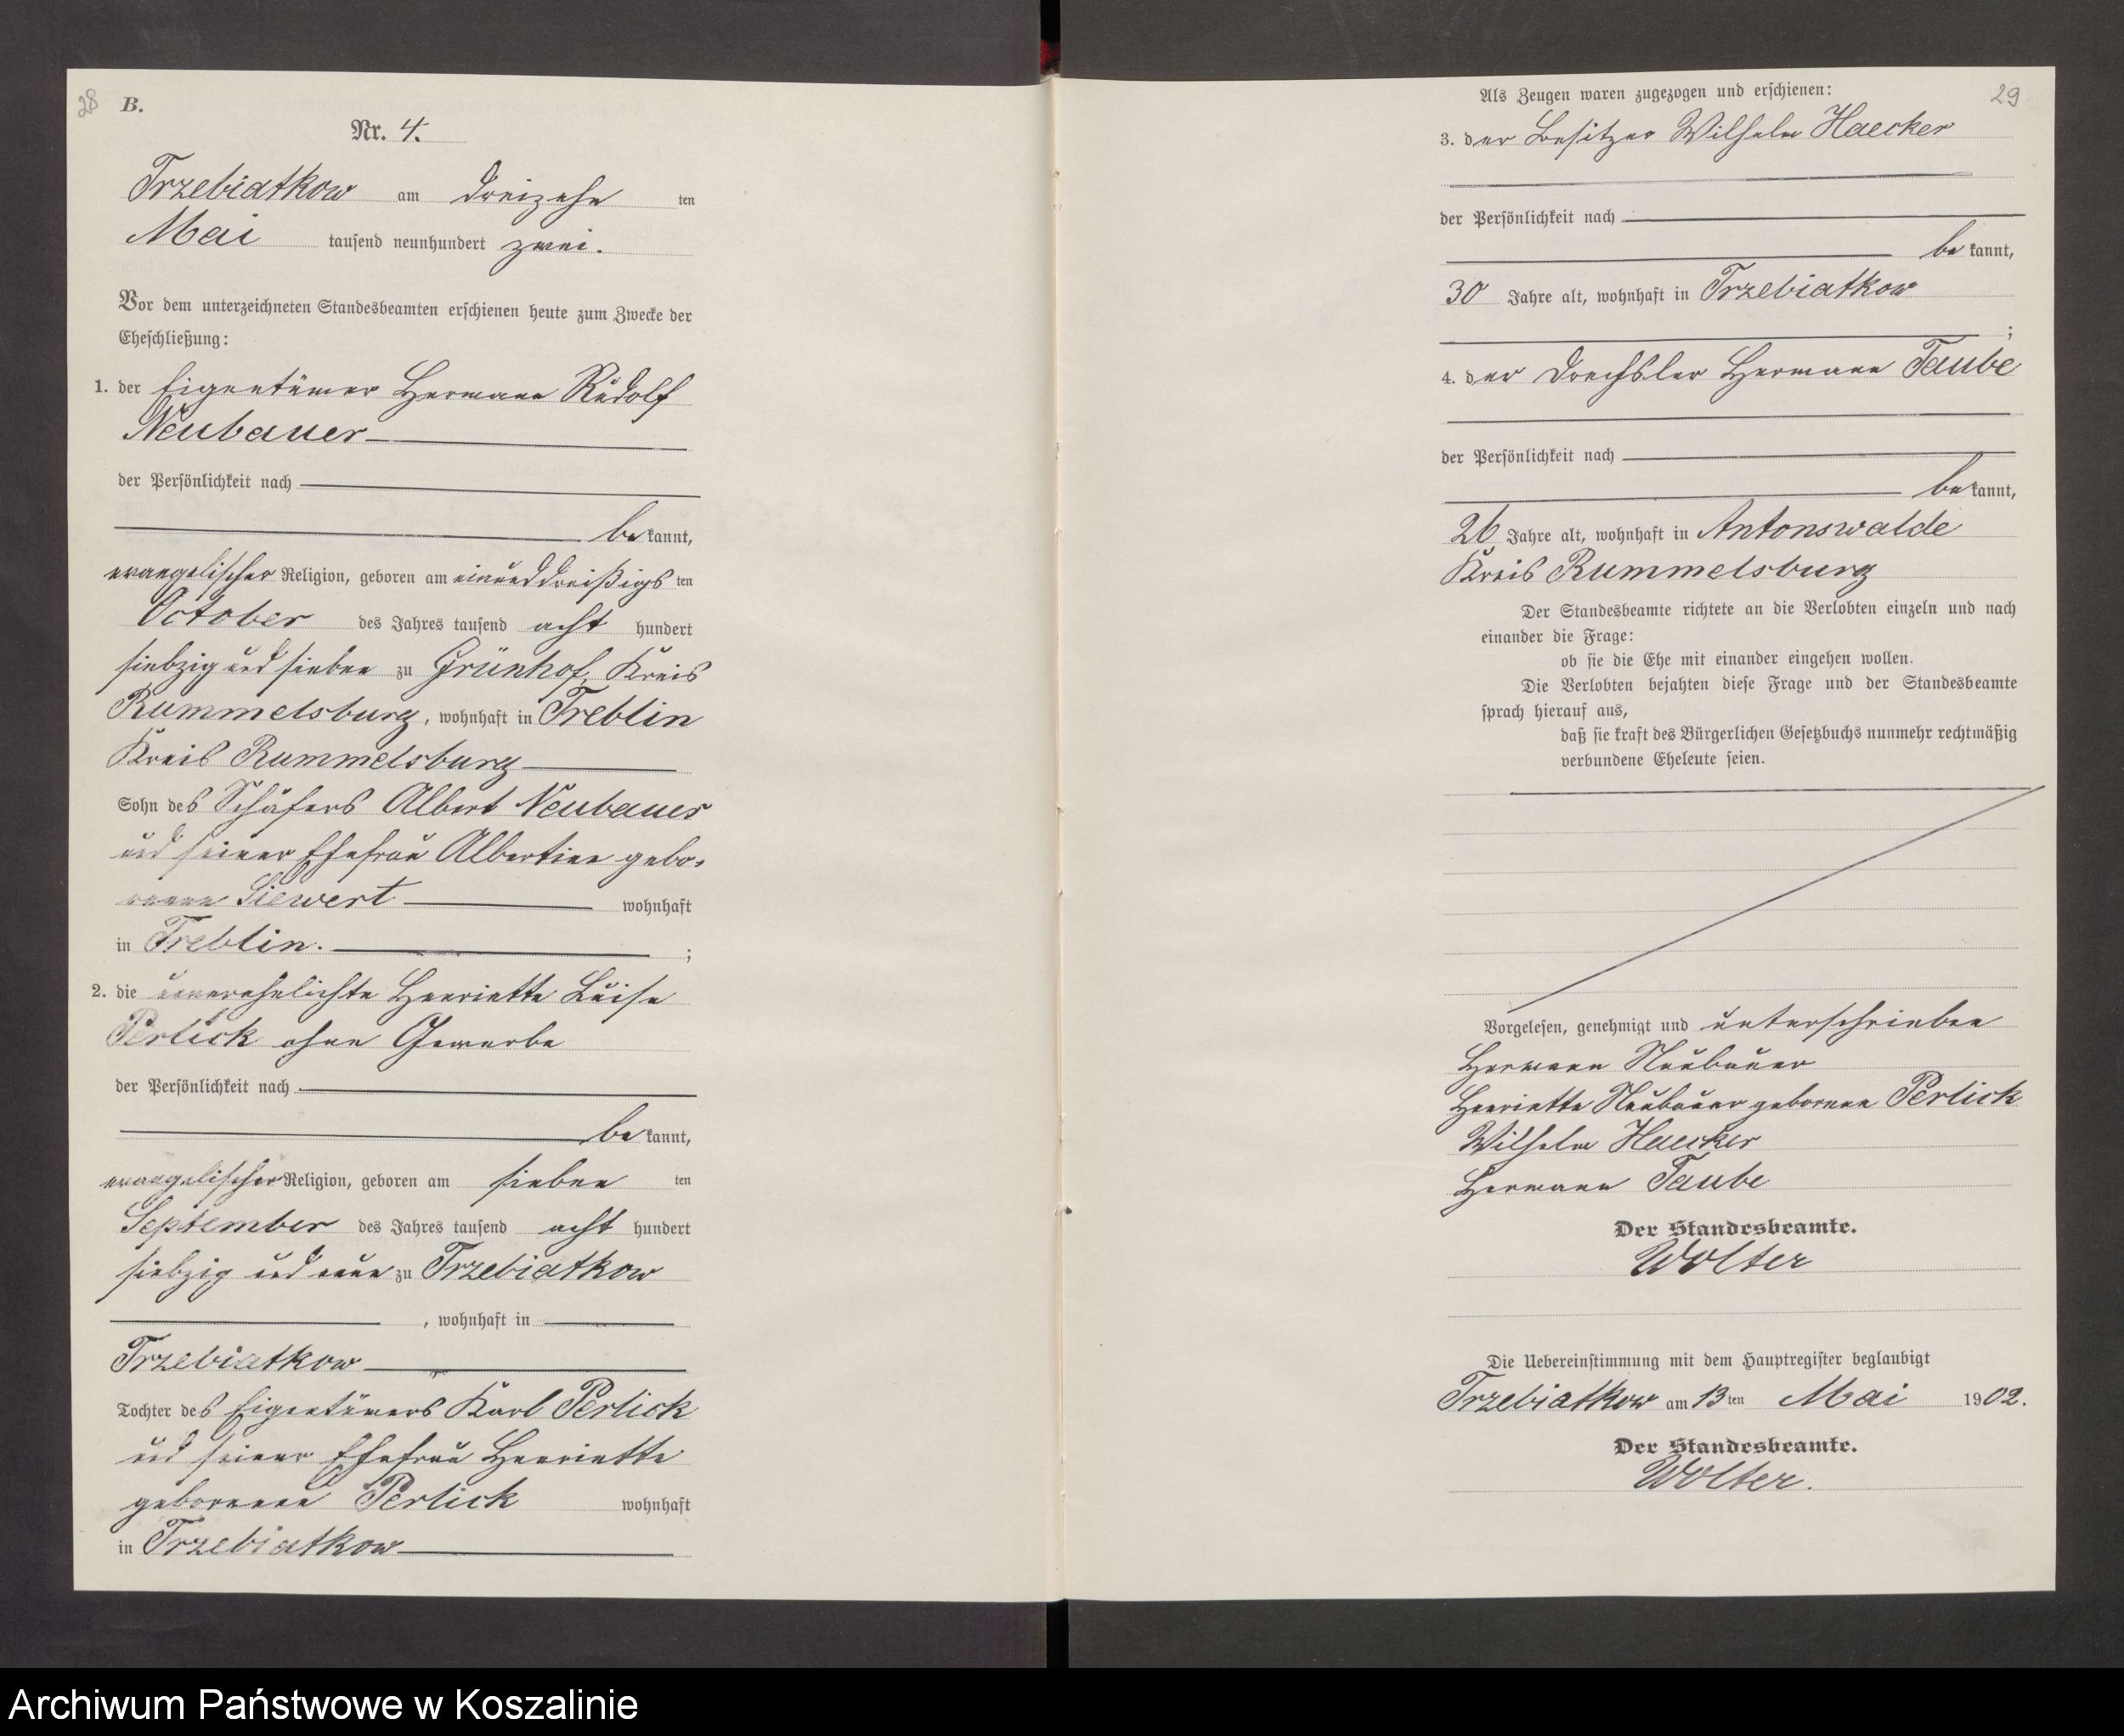 28 B.
Nr. 4.
Trzebiatkow am dreizehn ten
Mai tausend neunhundert zwei.
Vor dem unterzeichneten Standesbeamten erschienen heute zum Zwecke der
Eheschließung:
1. der Eigentümer Hermann Rudolf
Neubauer
der Persönlichkeit nach
be kannt,
evangelischer Religion, geboren am einunddreißigs ten
October des Jahres tausend acht hundert
siebzig und sieben zu Grünhof, Kreis
Rummelsburg, wohnhaft in Treblin
Kreis Rummelsburg
Sohn des Schäfers Albert Neubauer
und seiner Ehefrau Albertine gebo-
renen Siewert wohnhaft
in Treblin. ;
2. die unverehelichte Henriette Luise
Perlick ohne Gewerbe
der Persönlichkeit nach
be kannt,
evangelischer Religion, geboren am sieben ten
September des Jahres tausend acht hundert
siebzig und neun zu Trzebiatkow
, wohnhaft in
Trzebiatkow
Tochter des Eigentümers Karl Perlick
und seiner Ehefrau Henriette
geborenen Perlick wohnhaft
in Trzebiatkow
29
Als Zeugen waren zugezogen und erschienen:
3. der Besitzer Wilhelm Haecker
der Persönlichkeit nach
be kannt,
30 Jahre alt, wohnhaft in Trzebiatkow
;
4. der Drechsler Hermann Taube
der Persönlichkeit nach
be kannt,
26 Jahre alt, wohnhaft in Antonswalde
Kreis Rummelsburg
Der Standesbeamte richtete an die Verlobten einzeln und nach
einander die Frage:
ob sie die Ehe mit einander eingehen wollen.
Die Verlobten bejahten diese Frage und der Standesbeamte
sprach hierauf aus,
daß sie kraft des Bürgerlichen Gesetzbuchs nunmehr rechtmäßig
verbundene Eheleute seien.
Vorgelesen, genehmigt und unterschrieben
Hermann Neubauer
Henriette Neubauer geborene Perlick
Wilhelm Haecker
Hermann Taube
Der Standesbeamte.
Wolter
Die Uebereinstimmung mit dem Hauptregister beglaubigt
Trzebiatkow am 13 ten Mai 1902.
Der Standesbeamte.
Wolter.
Archiwum Państwowe w Koszalinie